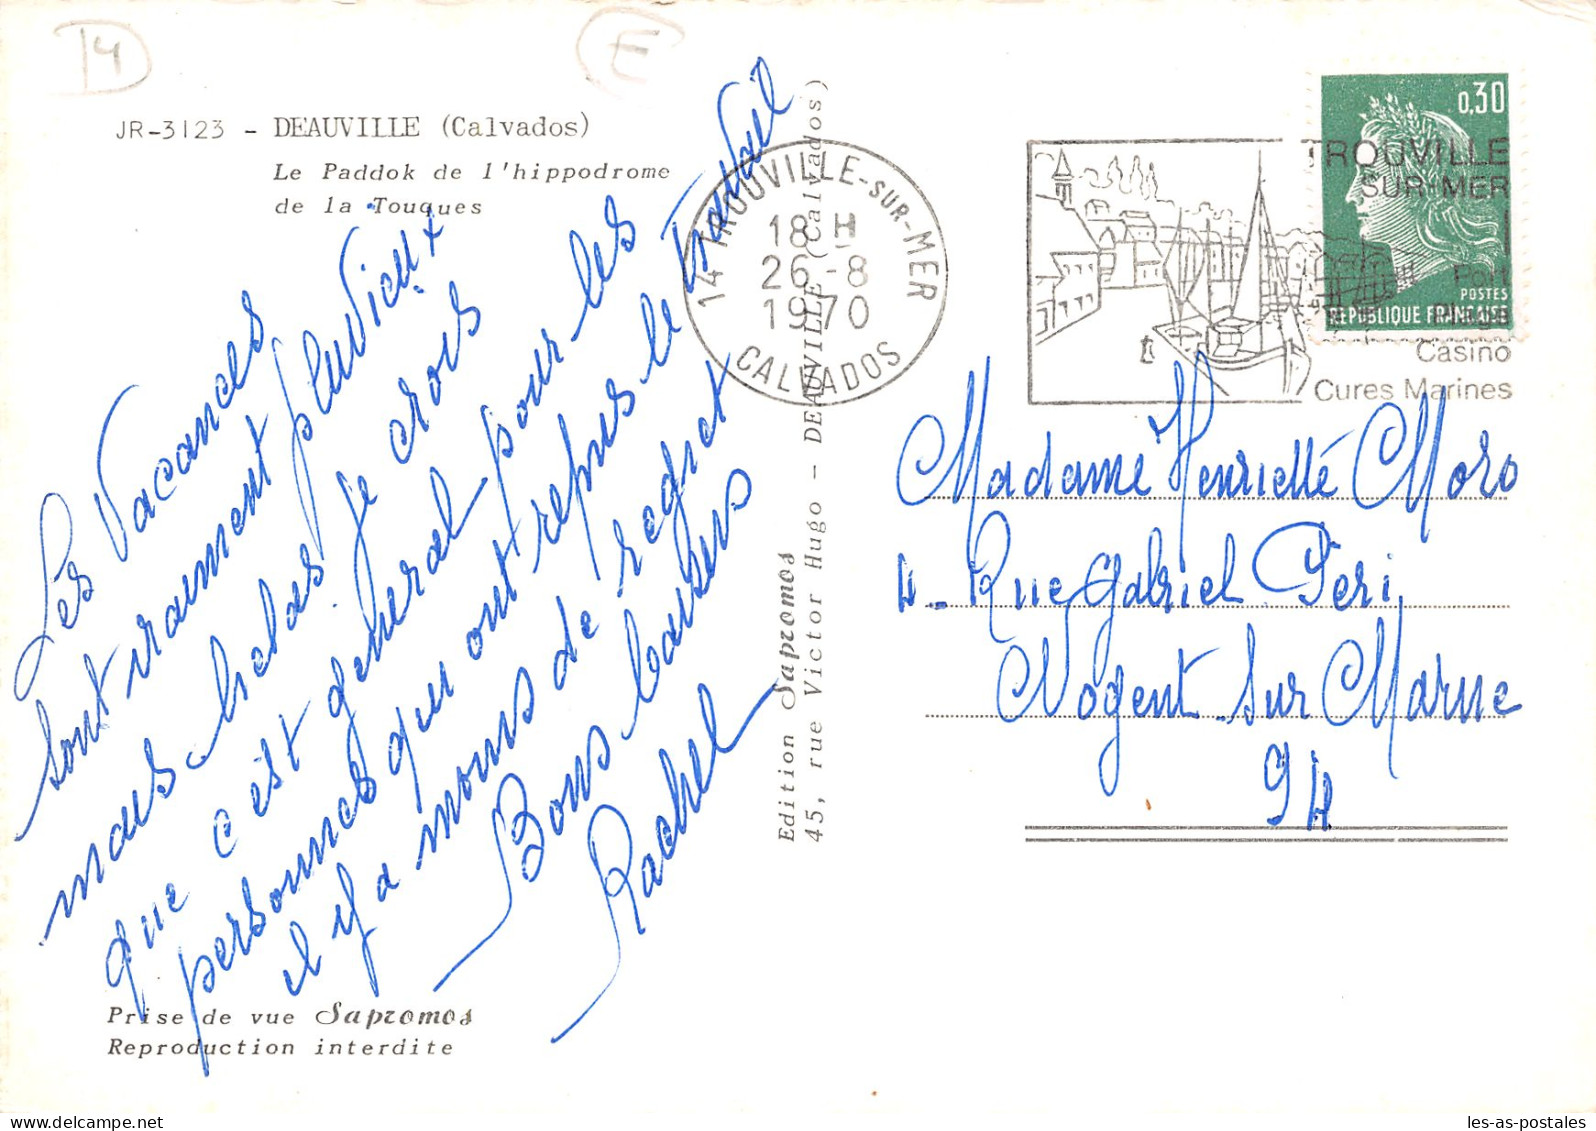 14
E
JR-3123 - DEAUVILLE (Calvados)
Le Paddok de l'hippodrome
de la Touques
Les Vacances
sont vraiment pluvieux
mais hélas je crois
que c'est général pour les
personnes qui ont repris le travail
il y a moins de regret
Bons baisers
Rachel
Prise de vue Sapromos
Reproduction interdite
Edition Sapromos
45, rue Victor Hugo - DEAUVILLE (Calvados)
14 TROUVILLE-SUR-MER
18 H
26 -8
1970
CALVADOS
TROUVILLE
SUR-MER
Port
Plage
Casino
Cures Marines
0,30
POSTES
REPUBLIQUE FRANCAISE
Madame Henriette Moro
Rue Gabriel Peri
Nogent sur Marne
94
les-as-postales